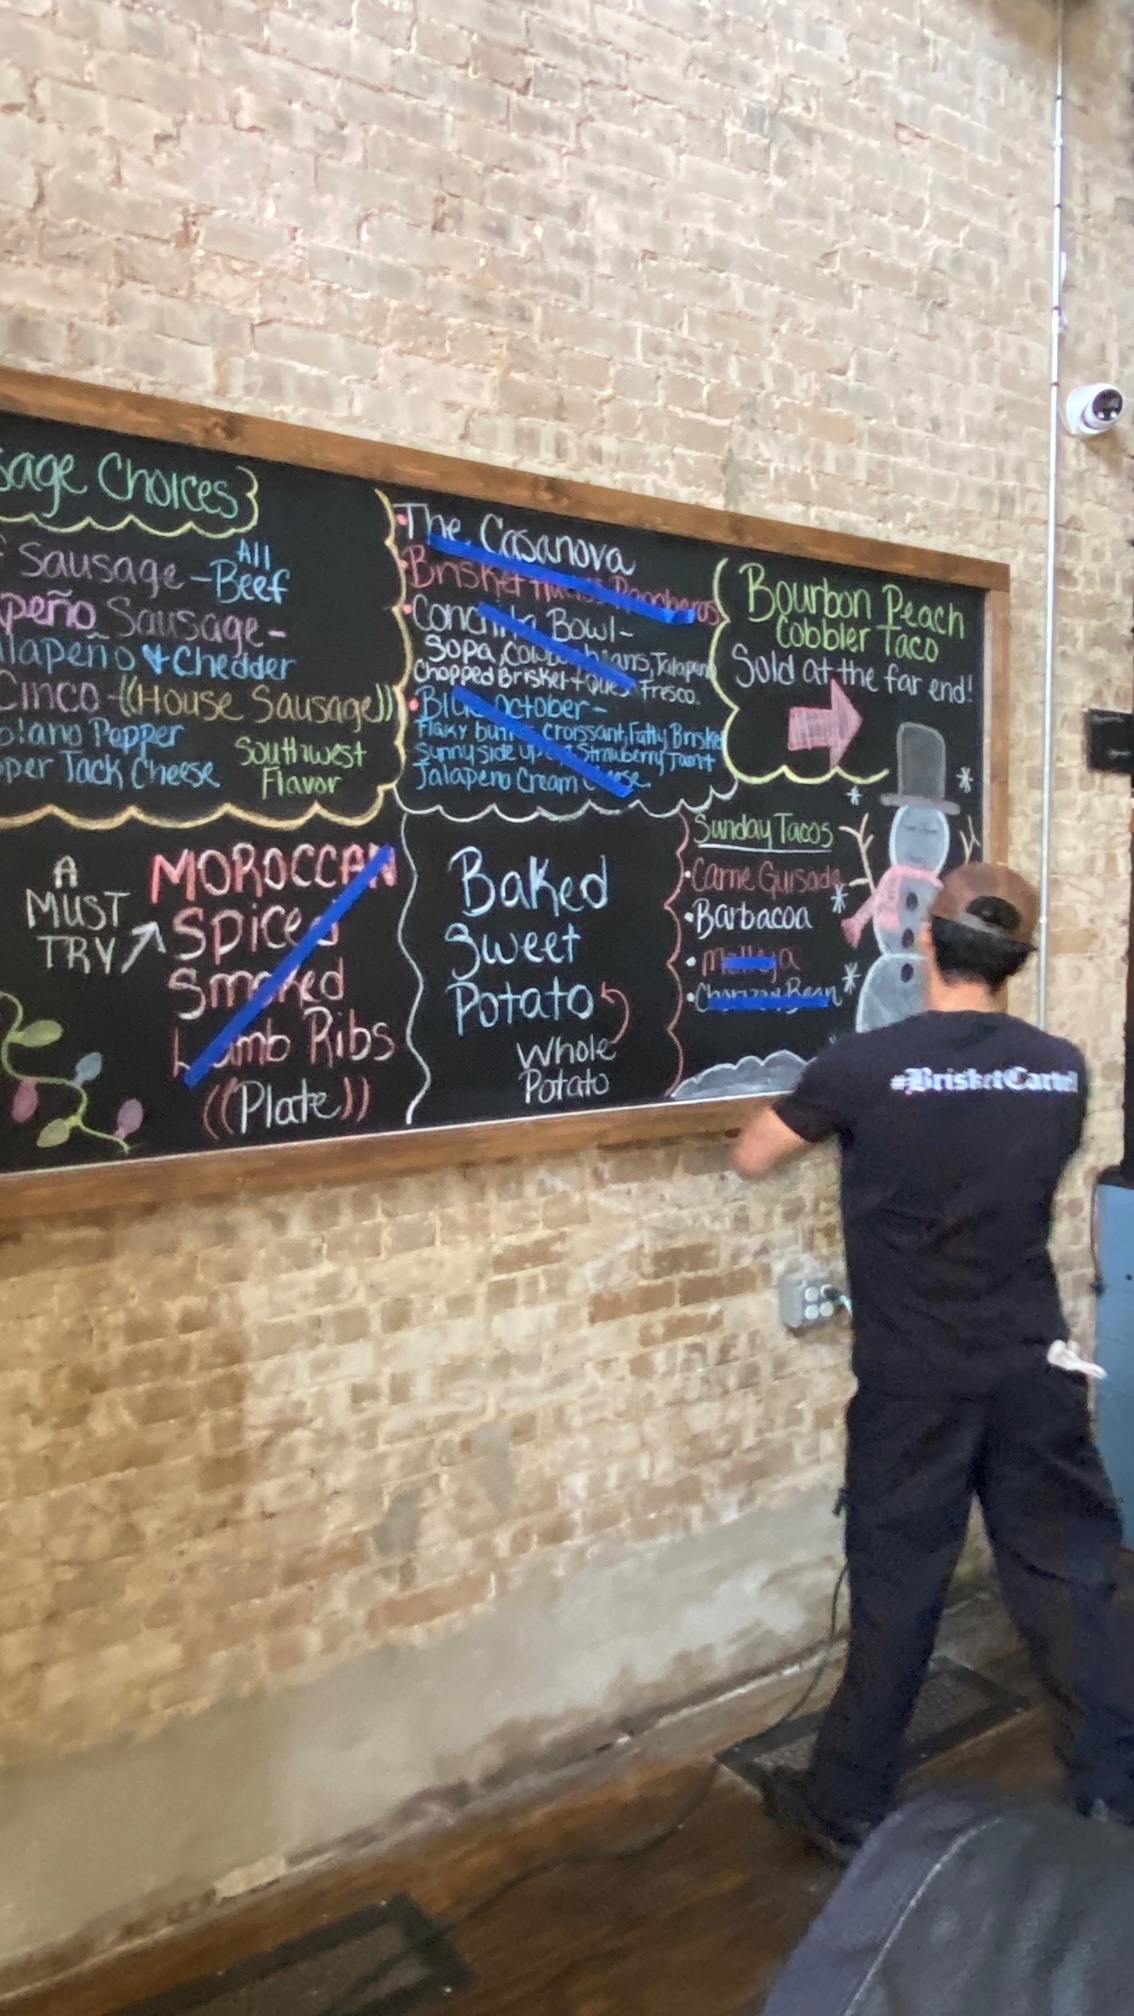 sage Choices
Sausage - All Beef
peño Sausage -
alapeño & Chedder
Cinco - ((House Sausage))
blano Pepper
per Jack Cheese
Southwest
Flavor
• The Casanova
• Brisket
• Bowl -
Sopa, Jalapeno
Chopped Brisket + Fresco.
• Blue October -
Flaky croissant, Fatty Brisket
Sunny side up Strawberry Jam +
Jalapeno Cream Cheese
Bourbon Peach
Cobbler Taco
Sold at the far end!
A
MUST
TRY
MOROCCAN
Spiced
Smoked
Lamb Ribs
((Plate))
Baked
Sweet
Potato
Whole
Potato
Sunday Tacos
• Carne Guisada
• Barbacoa
• Bean
#BrisketCartel